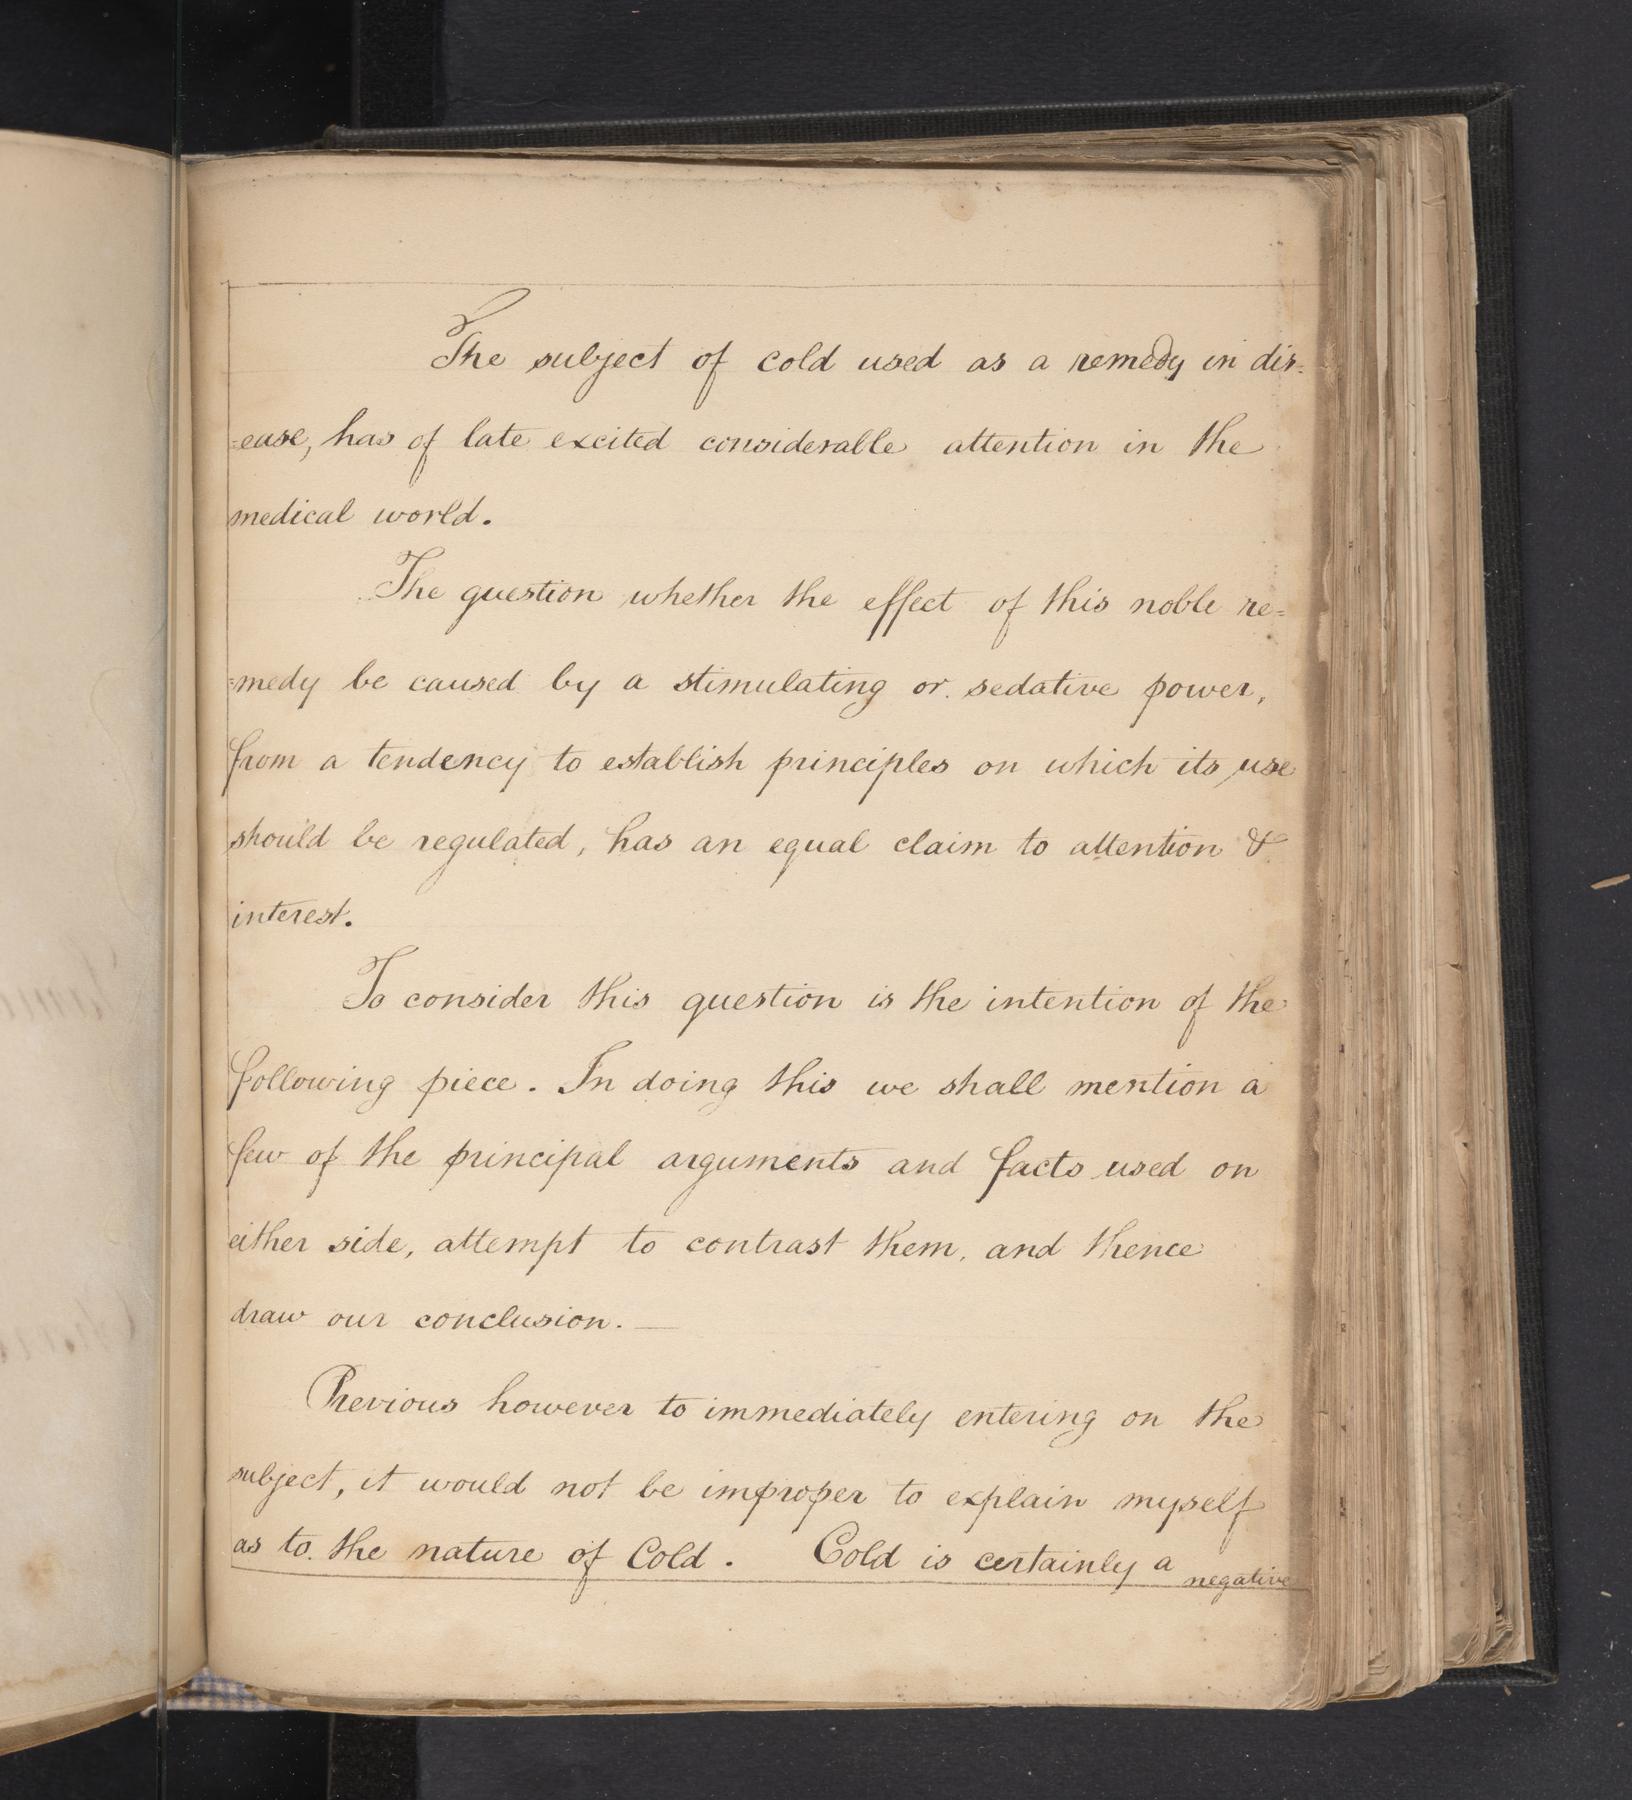 The subject of cold used as a remedy in dis=
=ease, has of late excited considerable attention in the
medical world.
The question whether the effect of this noble re=
=medy be caused by a stimulating or sedative power,
from a tendency to establish principles on which its use
should be regulated, has an equal claim to attention &
interest.
To consider this question is the intention of the
following piece. In doing this we shall mention a
few of the principal arguments and facts used on
either side, attempt to contrast them, and thence
draw our conclusion. —
Previous however to immediately entering on the
subject, it would not be improper to explain myself
as to the nature of Cold. Cold is certainly a negative